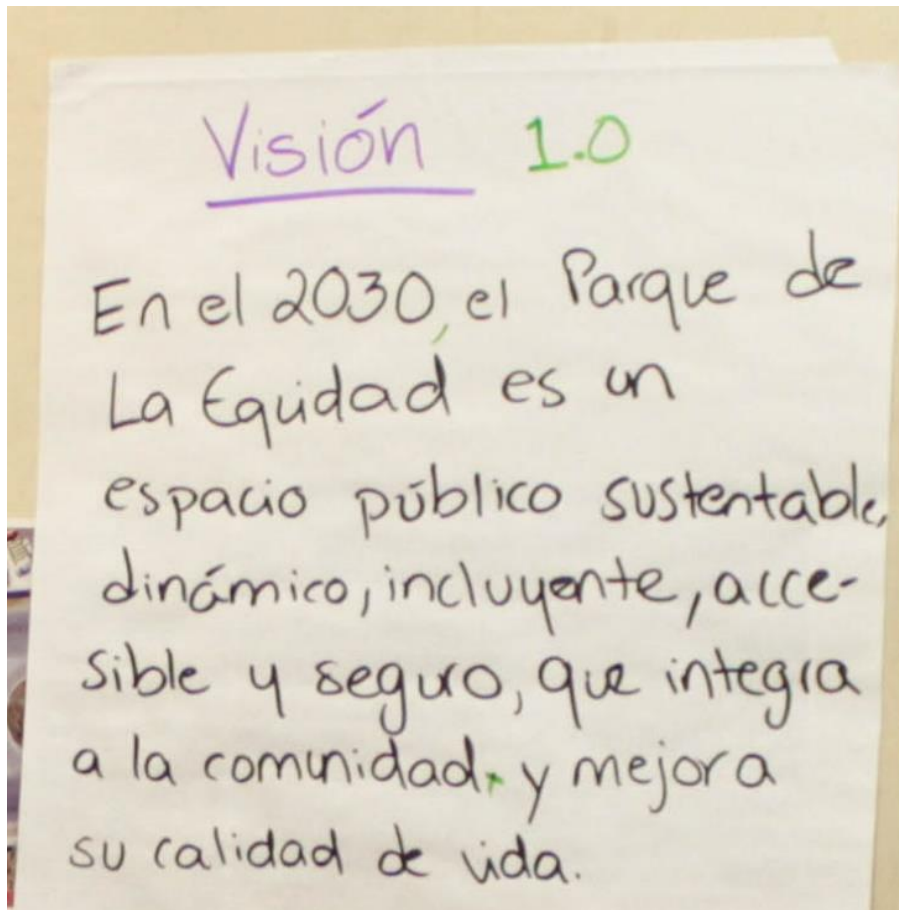 Visión 1.0
En el 2030, el Parque de
La Equidad es un
espacio público sustentable,
dinámico, incluyente, acce-
sible y seguro, que integra
a la comunidad, y mejora
su calidad de vida.